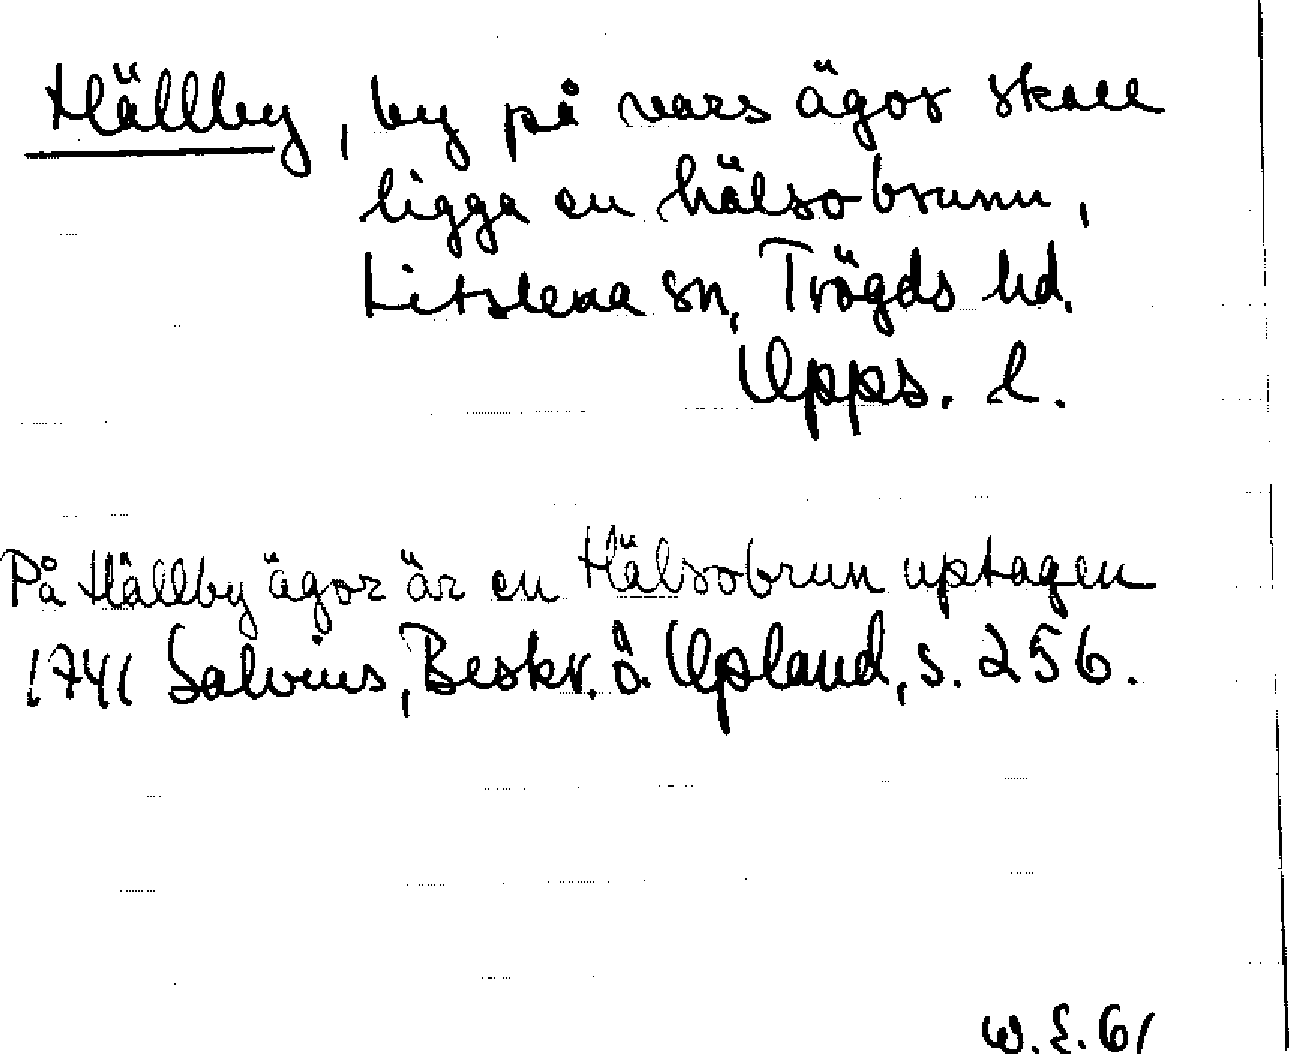 Hällby, by på vars ägor skall
ligga en hälsobrunn,
Litslena sn, Trögds hd.
Upps. l.
På Hällby ägor är en Hälsobrun uptagen
1741 Salvius, Beskr. ö. Upland, s. 256.
W.E. 61